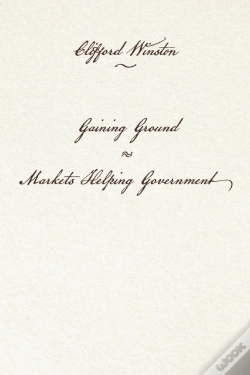 Clifford Winston
Gaining Ground
Markets Helping Government
wook